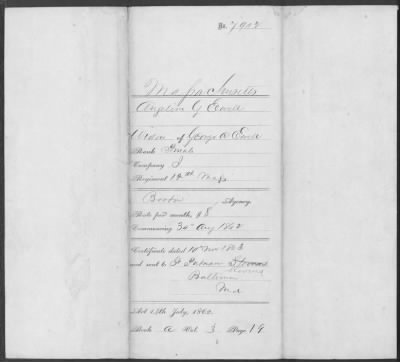 No. 7902
Massachusetts
Angeline G.
Widow of George A.
Rank Private
Company I
Regiment 12th Mass
Boston Agency.
Rate per month, $8
Commencing 30th Aug 1862
Certificate dated 10th Nov 1863
and sent to
Baltimore
Md
Act 14th July, 1862.
Book A Vol. 3 Page 19